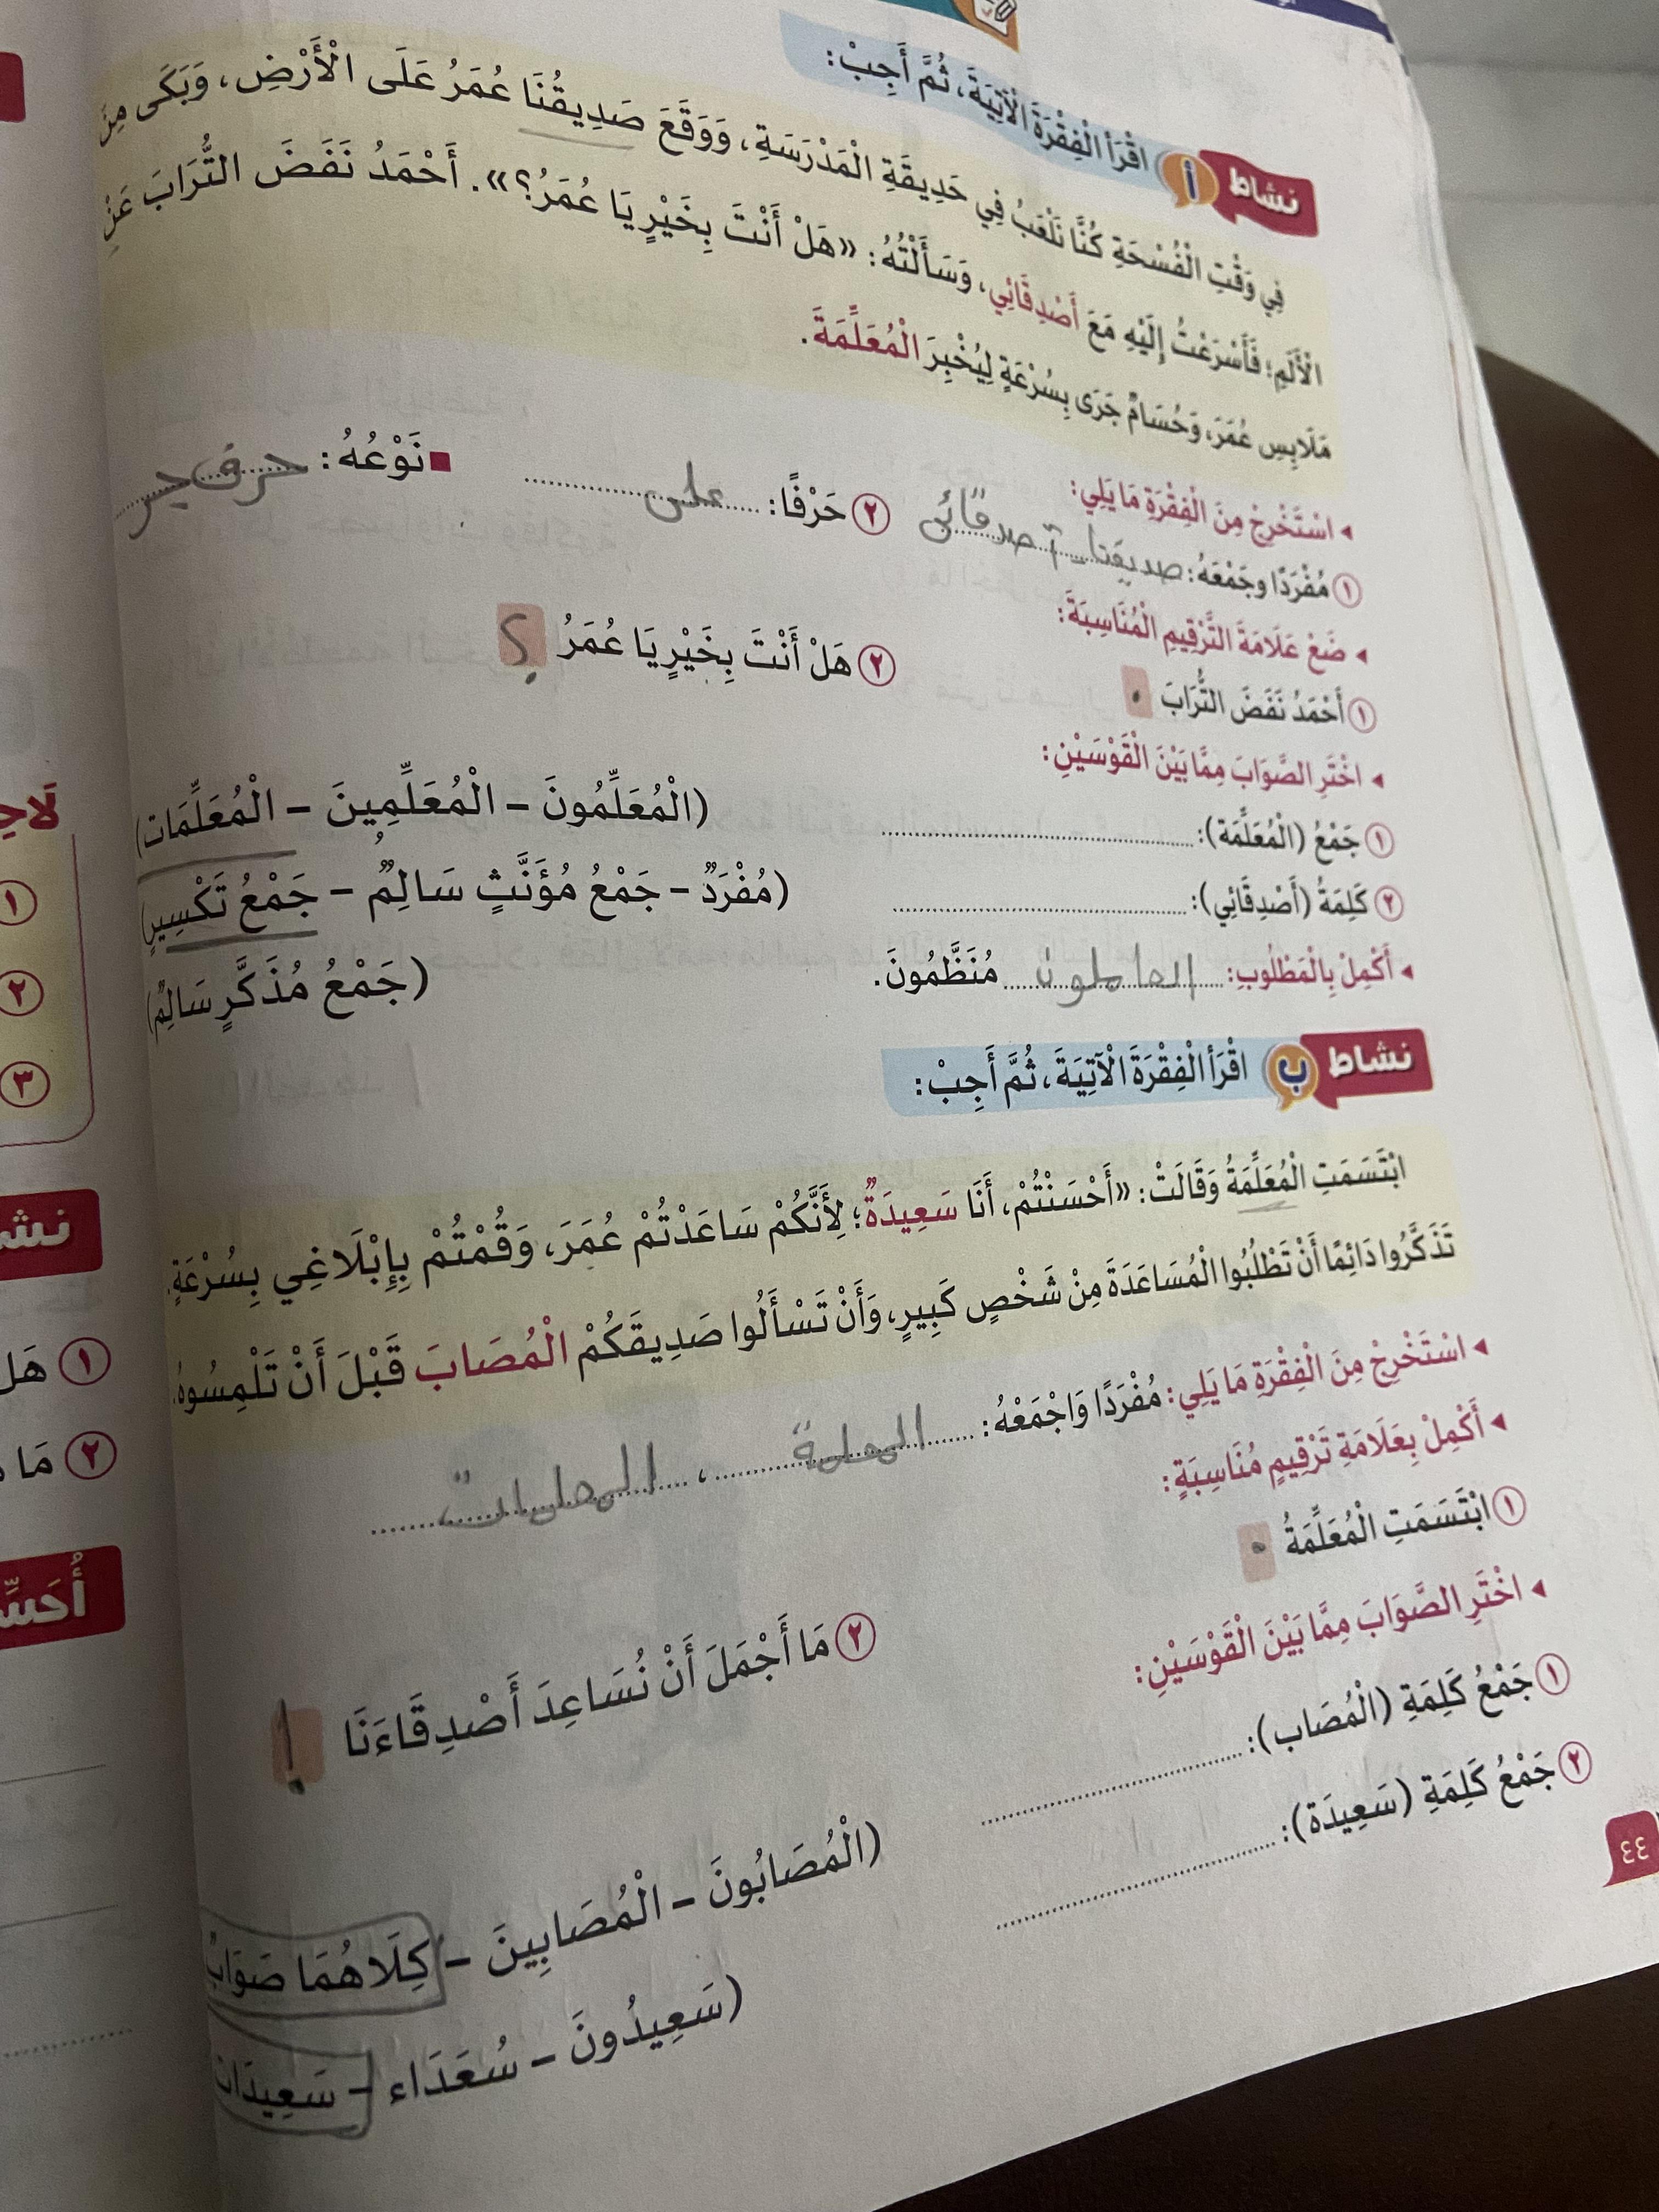 نشاط أ اقْرَأِ الْفِقْرَةَ الْآتِيَةَ، ثُمَّ أَجِبْ:
فِي وَقْتِ الْفُسْحَةِ كُنَّا نَلْعَبُ فِي حَدِيقَةِ الْمَدْرَسَةِ، وَوَقَعَ صَدِيقُنَا عُمَرُ عَلَى الْأَرْضِ، وَبَكَى مِنَ
الْأَلَمِ؛ فَأَسْرَعْتُ إِلَيْهِ مَعَ أَصْدِقَائِي، وَسَأَلْتُهُ: «هَلْ أَنْتَ بِخَيْرٍ يَا عُمَرُ؟». أَحْمَدُ نَفَضَ التُّرَابَ عَنْ
مَلَابِسِ عُمَرَ، وَحُسَامٌ جَرَى بِسُرْعَةٍ لِيُخْبِرَ الْمُعَلِّمَةَ.
اسْتَخْرِجْ مِنَ الْفِقْرَةِ مَا يَلِي:
١ مُفْرَدًا وجَمْعَهُ: صديقنا أصدقائي ٢ حَرْفًا: على نَوْعُهُ: حرف جر
ضَعْ عَلَامَةَ التَّرْقِيمِ الْمُنَاسِبَةَ:
١ أَحْمَدُ نَفَضَ التُّرَابَ . ٢ هَلْ أَنْتَ بِخَيْرٍ يَا عُمَرُ ؟
اخْتَرِ الصَّوَابَ مِمَّا بَيْنَ الْقَوْسَيْنِ:
١ جَمْعُ (الْمُعَلِّمَة): (الْمُعَلِّمُونَ – الْمُعَلِّمِينَ – الْمُعَلِّمَات)
٢ كَلِمَةُ (أَصْدِقَائِي): (مُفْرَدٌ – جَمْعُ مُؤَنَّثٍ سَالِمٌ – جَمْعُ تَكْسِيرٍ)
أَكْمِلْ بِالْمَطْلُوبِ: العاملون مُنَظَّمُونَ. (جَمْعُ مُذَكَّرٍ سَالِمٌ)
نشاط ب اقْرَأِ الْفِقْرَةَ الْآتِيَةَ، ثُمَّ أَجِبْ:
ابْتَسَمَتِ الْمُعَلِّمَةُ وَقَالَتْ: «أَحْسَنْتُمْ، أَنَا سَعِيدَةٌ؛ لِأَنَّكُمْ سَاعَدْتُمْ عُمَرَ، وَقُمْتُمْ بِإِبْلَاغِي بِسُرْعَةٍ.
تَذَكَّرُوا دَائِمًا أَنْ تَطْلُبُوا الْمُسَاعَدَةَ مِنْ شَخْصٍ كَبِيرٍ، وَأَنْ تَسْأَلُوا صَدِيقَكُمْ الْمُصَابَ قَبْلَ أَنْ تَلْمِسُوهُ
اسْتَخْرِجْ مِنَ الْفِقْرَةِ مَا يَلِي: مُفْرَدًا وَاجْمَعْهُ: المعلمة ، المعلمات
أَكْمِلْ بِعَلَامَةِ تَرْقِيمٍ مُنَاسِبَةٍ:
١ ابْتَسَمَتِ الْمُعَلِّمَةُ . ٢ مَا أَجْمَلَ أَنْ نُسَاعِدَ أَصْدِقَاءَنَا !
اخْتَرِ الصَّوَابَ مِمَّا بَيْنَ الْقَوْسَيْنِ:
١ جَمْعُ كَلِمَةِ (الْمُصَاب): (الْمُصَابُونَ – الْمُصَابِينَ – كِلَاهُمَا صَوَابٌ
٢ جَمْعُ كَلِمَةِ (سَعِيدَة): (سَعِيدُونَ – سُعَدَاء – سَعِيدَات
٤٤
١
٢
٣
١ هَل
٢ مَا